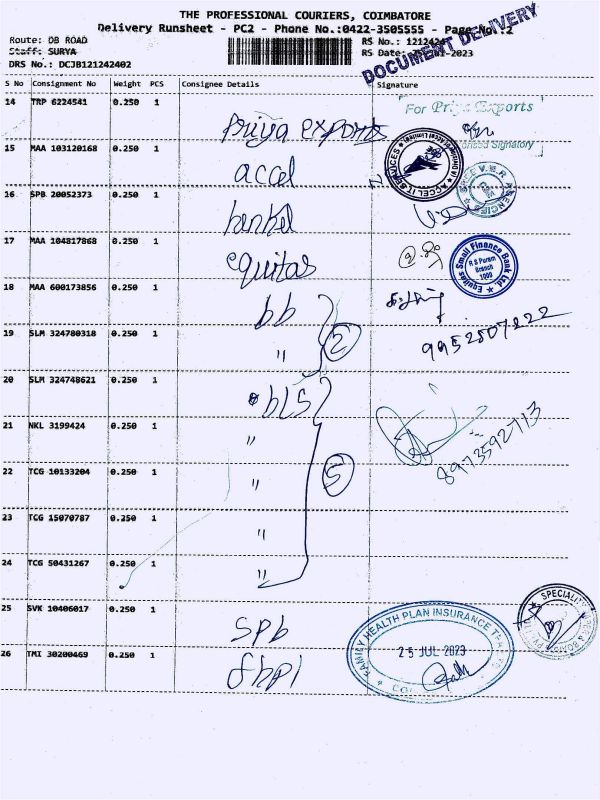 THE PROFESSIONAL COURIERS, COIMBATORE
Delivery Runsheet - PC2 - Phone No.:0422-3505555 - Page No.:2
Route: DB ROAD
Staff: SURYA
DRS No.: DCJB121242402
RS No.:
RS Date:
-2023
DOCUMENT DELIVERY
S No Consignment No Weight PCS Consignee Details Signature
14 TRP 6224541 0.250 1 Priya exports
For Priya Exports
Signatory
15 MAA 103120168 0.250 1 accel
ACCEL IT SERVICES
16 SPB 20052373 0.250 1 henkel
AGENCIES
17 MAA 104817868 0.250 1 equitas
Equitas Small Finance Bank Ltd.
R S Puram
Branch
1009
18 MAA 600173856 0.250 1 bb
19 SLM 324780318 0.250 1 " 2
9952507222
20 SLM 324748621 0.250 1 bls
21 NKL 3199424 0.250 1 "
8973592713
22 TCG 10133204 0.250 1 " 5
23 TCG 15070787 0.250 1 "
24 TCG 50431267 0.250 1 "
25 SVK 10406017 0.250 1 spb
SPECIALITY
26 TMI 30200469 0.250 1 fhpl
FAMILY HEALTH PLAN INSURANCE
25 JUL 2023